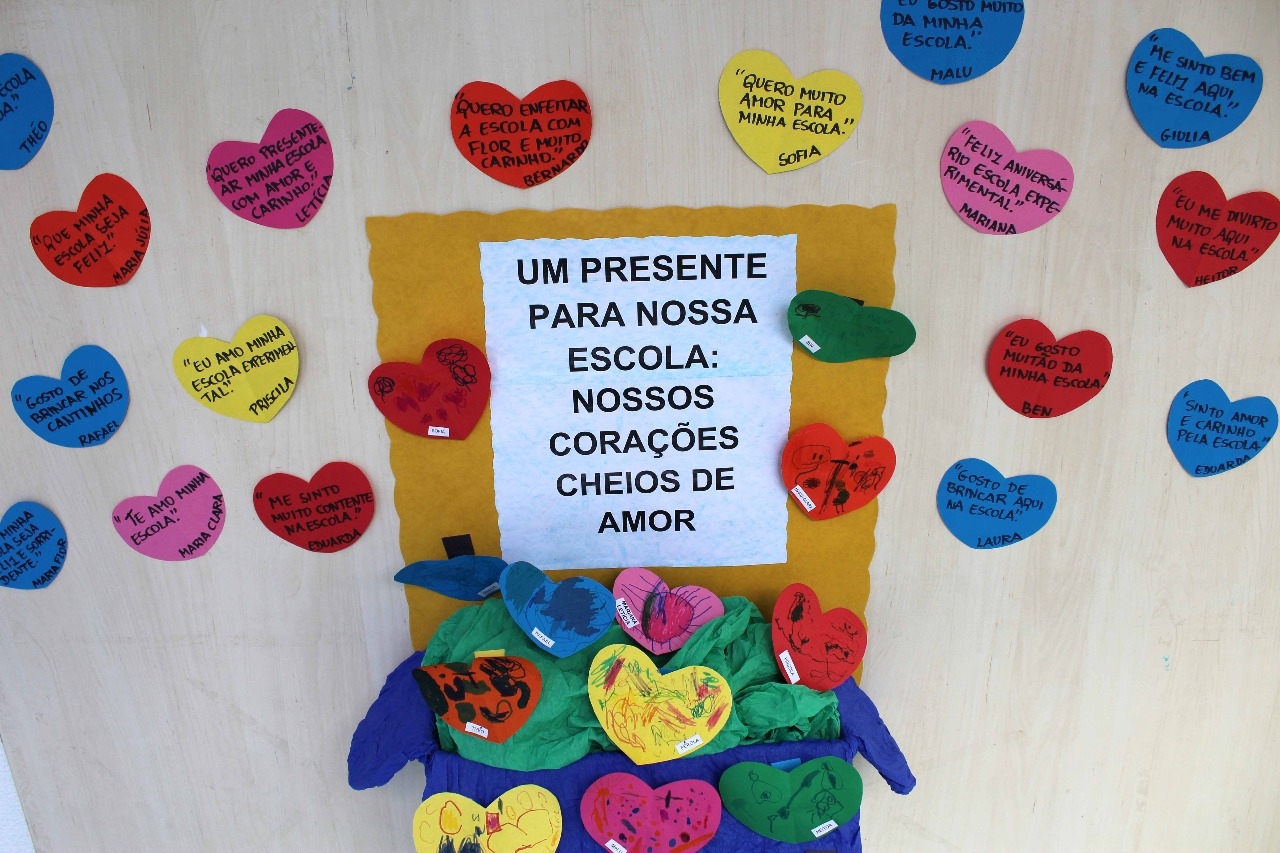 UM PRESENTE
PARA NOSSA
ESCOLA:
NOSSOS
CORAÇÕES
CHEIOS DE
AMOR
ESCOLA
THÉO
"QUE MINHA
ESCOLA SEJA
FELIZ."
MARIA JÚLIA
"QUERO PRESENTE-
AR MINHA ESCOLA
COM AMOR E
CARINHO."
LETÍCIA
"QUERO ENFEITAR
A ESCOLA COM
FLOR E MUITO
CARINHO."
BERNARDO
"QUERO MUITO
AMOR PARA
MINHA ESCOLA."
SOFIA
EU GOSTO MUITO
DA MINHA
ESCOLA."
MALU
"ME SINTO BEM
E FELIZ AQUI
NA ESCOLA."
GIULIA
"FELIZ ANIVERSÁ-
RIO ESCOLA EXPE-
RIMENTAL."
MARIANA
"EU ME DIVIRTO
MUITO AQUI
NA ESCOLA."
HEITOR
"GOSTO DE
BRINCAR NOS
CANTINHOS
RAFAEL
"EU AMO MINHA
ESCOLA EXPERIMEN
TAL."
PRISCILA
"EU GOSTO
MUITÃO DA
MINHA ESCOLA."
BEN
"SINTO AMOR
E CARINHO
PELA ESCOLA."
EDUARDA
MINHA
SEJA
E SORRI-
DENTE."
MARIA FLOR
"TE AMO MINHA
ESCOLA."
MARIA CLARA
"ME SINTO
MUITO CONTENTE
NA ESCOLA."
EDUARDA
"GOSTO DE
BRINCAR AQUI
NA ESCOLA."
LAURA
SOFIA
THÉO
HEITOR